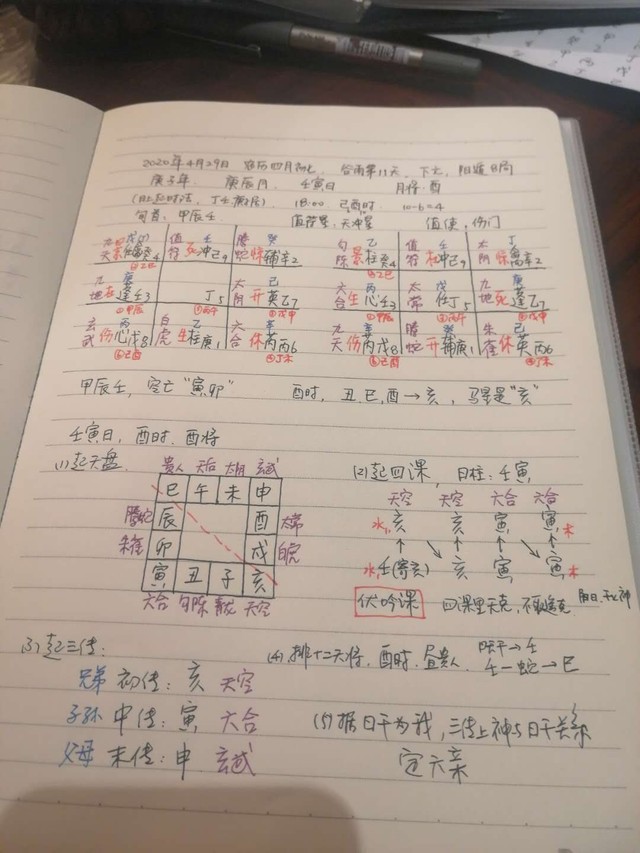 2020年4月29日 农历四月初七 谷雨第11天、下元, 阳遁8局
庚子年. 庚辰月 壬寅日 月将:酉
(日上起时法, 丁壬庚子居) 18:00 己酉时 10-6=4
旬首: 甲辰壬 值符星:天冲星 值使:伤门
值符 壬 死 冲己9
腾蛇 癸 惊 辅辛2
勾陈 乙 景 柱癸4
值符 壬 杜 冲己9
太阴 丁 惊
②乙巳
②乙巳
九地 庚 蓬壬3
丁5
太阴 己 开 英乙7
六合 丙 生 心壬3
太常 戊 任丁5
九地 庚 死 蓬乙7
玄武 丙 伤 心戊8
白虎 乙 生 柱庚1
六合 辛 休 芮丙6
九天 辛 伤 芮戊8
腾蛇 癸 开 辅庚1
朱雀 己 休 英丙6
⑥己酉
甲辰壬, 空亡"寅.卯" 酉时, 丑、巳、酉→亥, 马星是"亥"
壬寅日, 酉时. 酉将
(1)起天盘 贵人 天后 太阴 玄武
(2)起四课, 日柱: 壬寅
巳 午 未 申
天空 天空 六合 六合
腾蛇 辰 酉 太常
水 亥 亥 寅 寅 木
朱雀 卯 戌 白虎
↑ ↘ ↑ ↑ ↘ ↑
寅 丑 子 亥
水 壬(寄亥) 亥 寅 寅 木
六合 勾陈 青龙 天空
伏吟课 四课里无克, 不取遥克
(3)起三传:
(4)排十二天将, 酉时. 昼贵人
壬—蛇→巳
兄弟 初传: 亥 天空
子孙 中传: 寅 六合
(5)据日干为我, 三传上神与日干关系
父母 末传: 申 玄武
定六亲